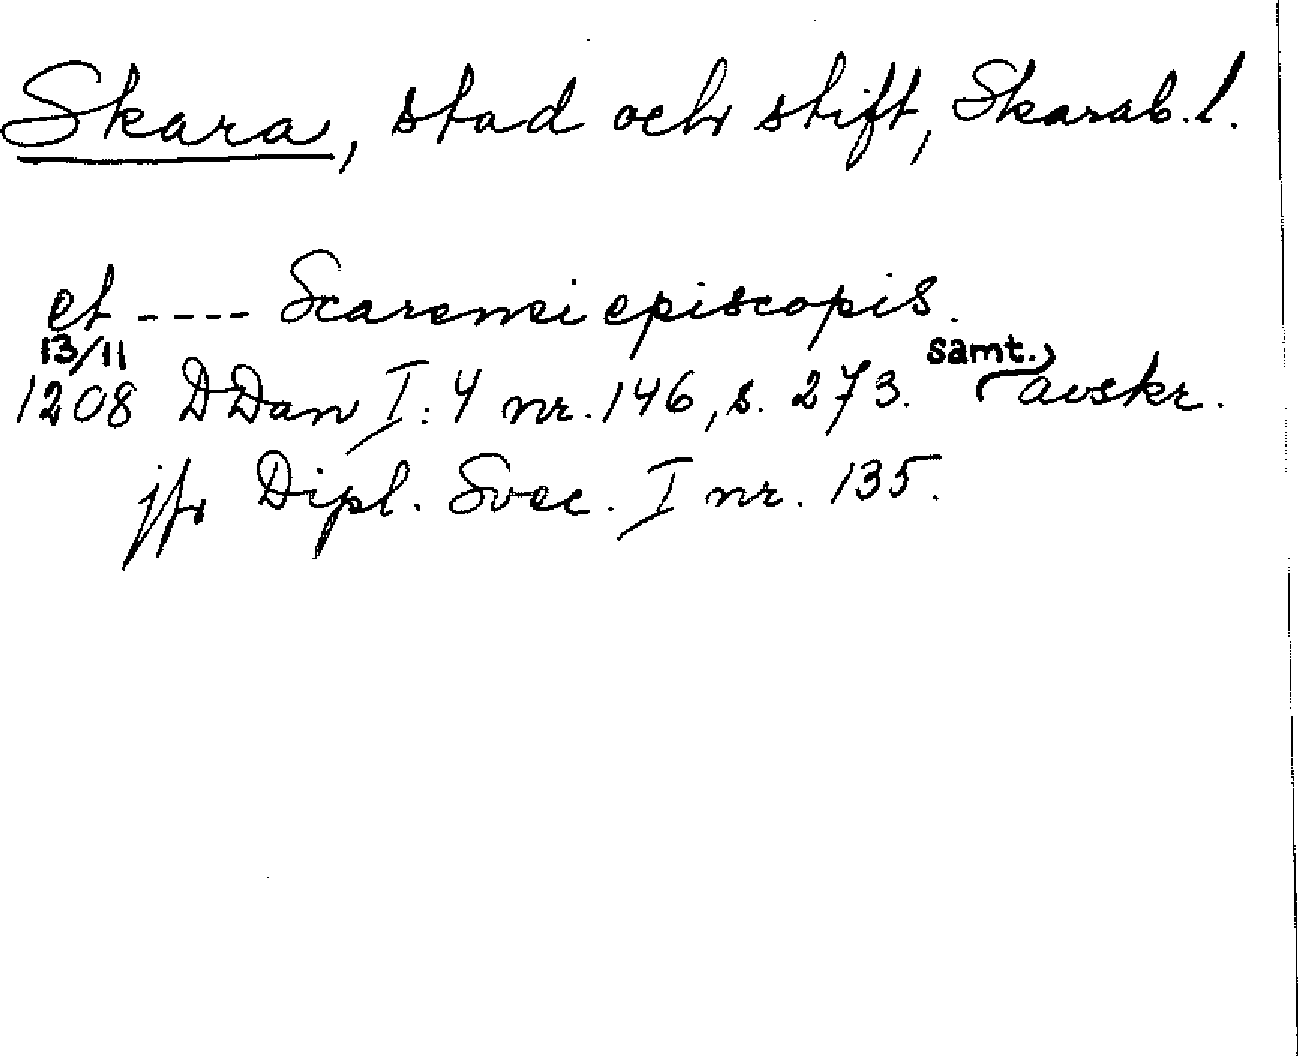 Skara, stad och stift, Skarab. l.
et ---- Scarensi episcopis.
13/11
1208 DDan I:4 nr. 146, s. 273. samt. avskr.
jfr Dipl. Svec. I nr. 135.